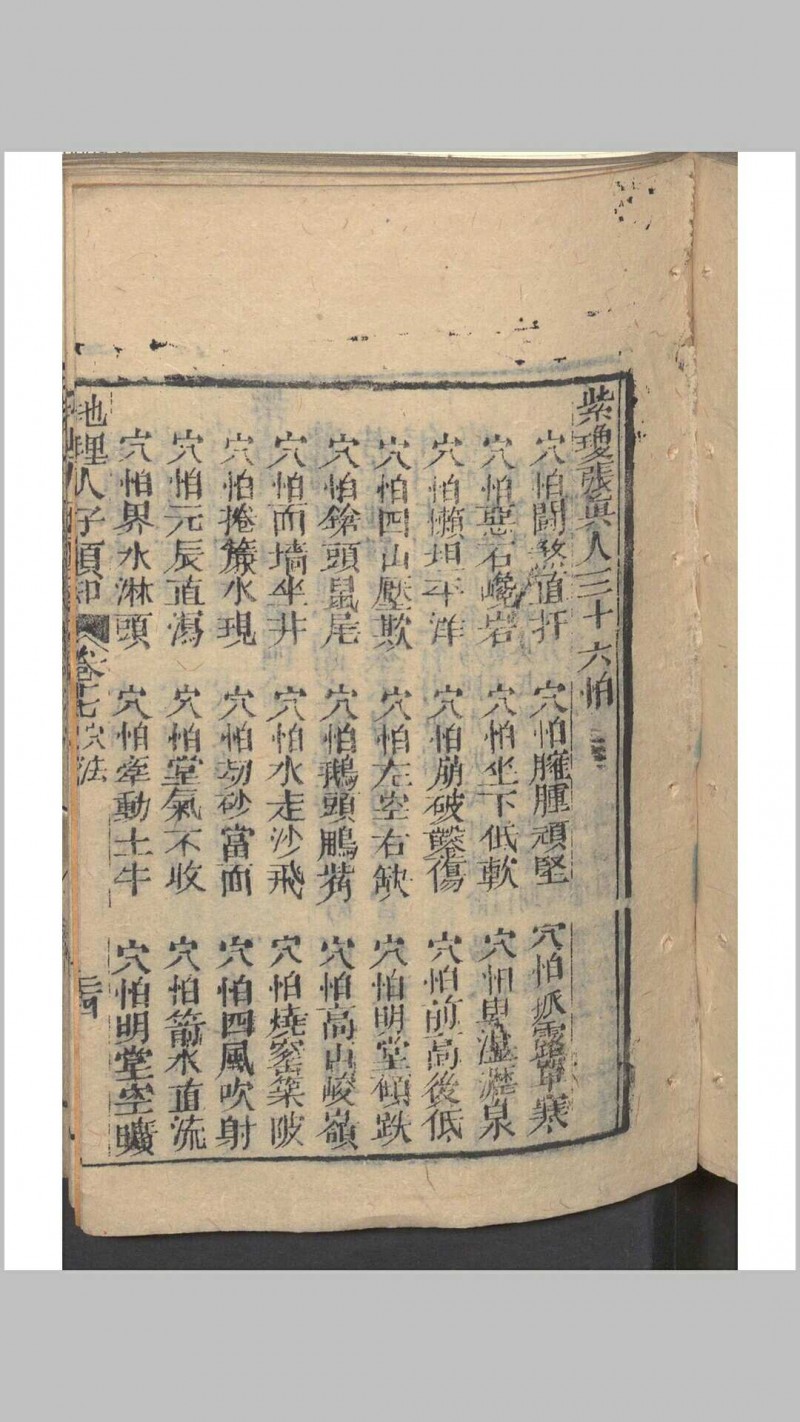 紫瓊張真人三十六怕
穴怕鬪煞直扦 穴怕臃腫頑堅 穴怕孤露單寒
穴怕惡石巉岩 穴怕坐下低軟 穴怕卑濕瀝泉
穴怕懶坦平洋 穴怕崩破鑿傷 穴怕前高後低
穴怕四山壓欺 穴怕左空右缺 穴怕明堂傾跌
穴怕鎗頭鼠尾 穴怕鵝頭鴨觜 穴怕高山峻嶺
穴怕面墻坐井 穴怕水走沙飛 穴怕燒窰築陂
穴怕捲簾水現 穴怕刧砂當面 穴怕四風吹射
穴怕元辰直瀉 穴怕堂氣不收 穴怕箭水直流
穴怕界水淋頭 穴怕牽動土牛 穴怕明堂空曠
地理人子須知 卷十七 穴法